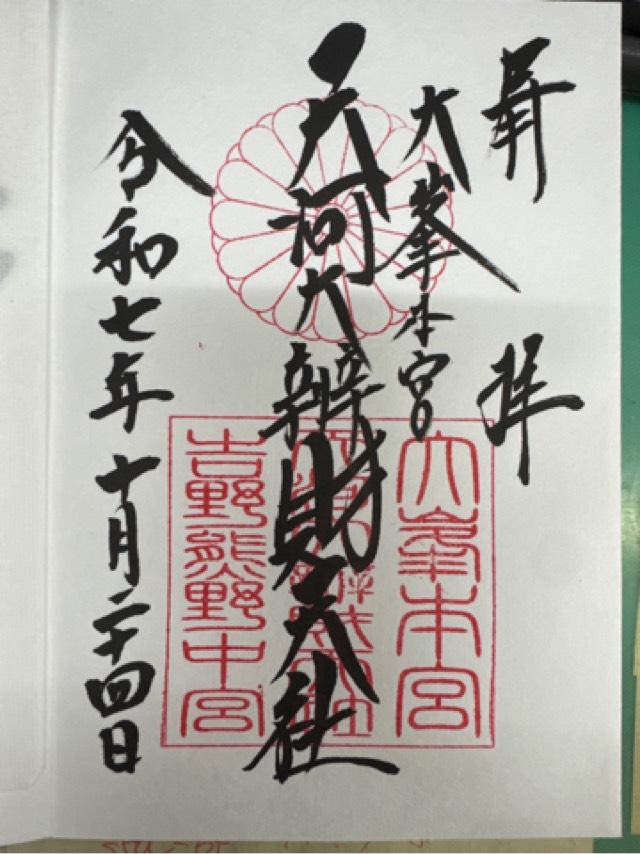 昇拝
大峯本宮
天河大辨財天社
令和七年十月二十四日
大峯本宮
吉野熊野中宮